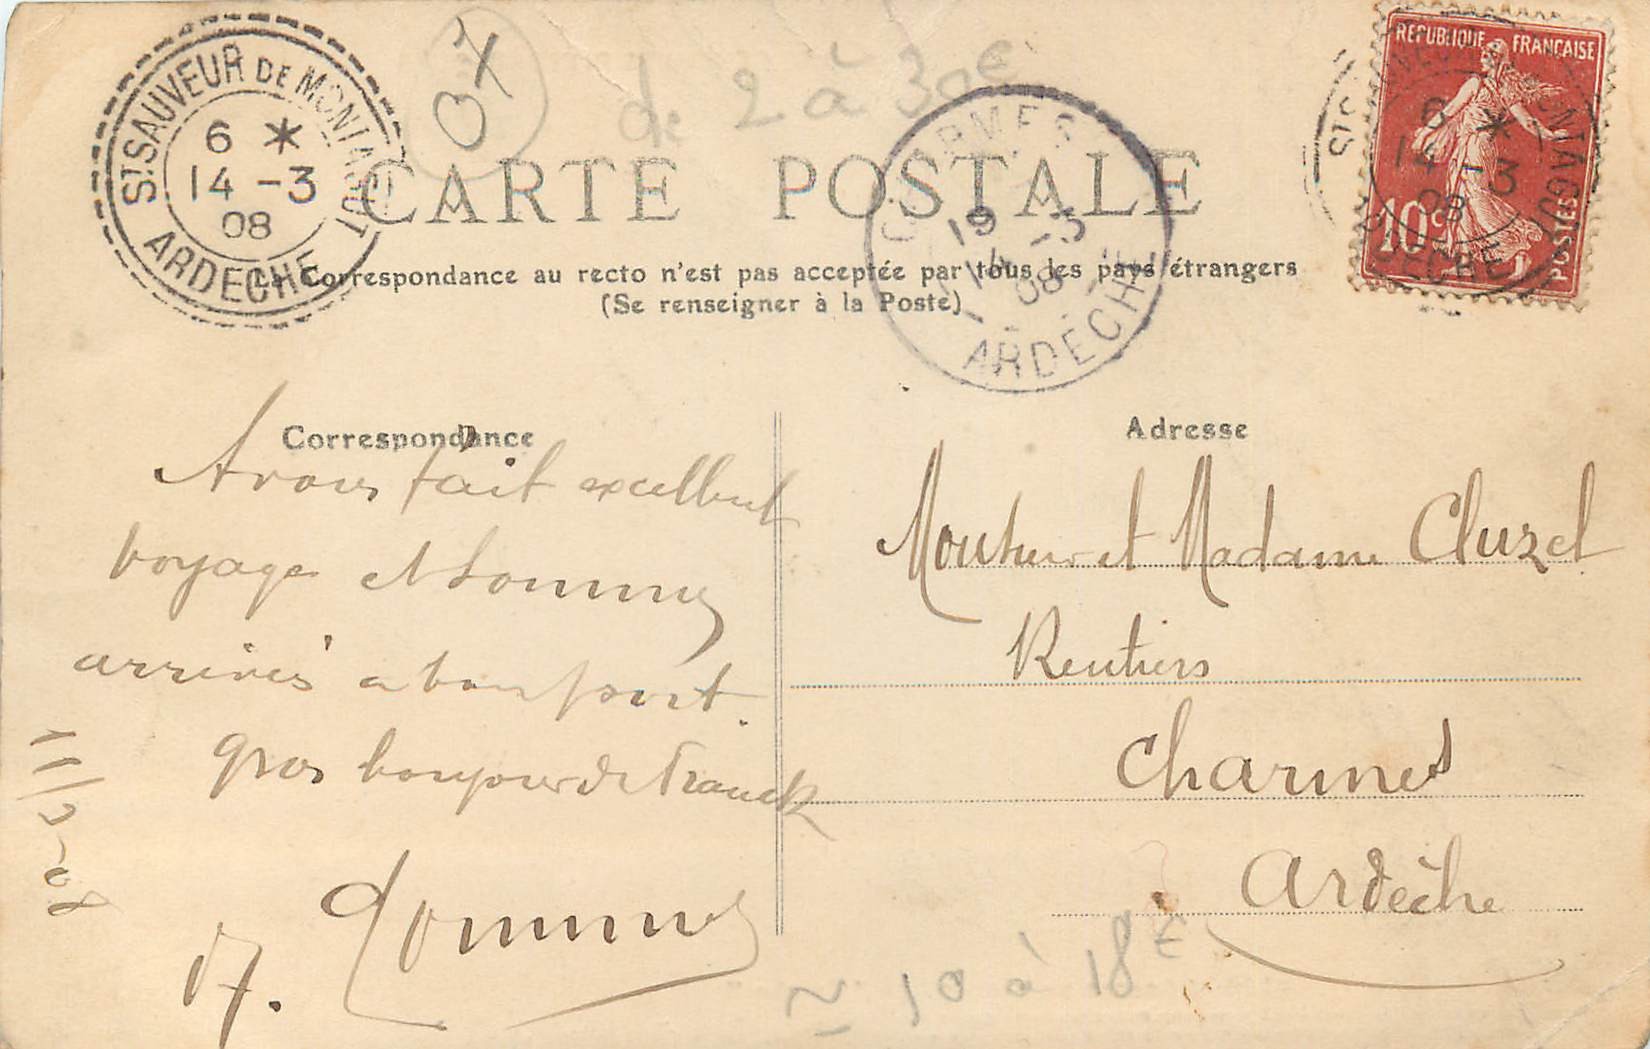 ST SAUVEUR DE MONTAGUT
6 *
14 -3
08
ARDECHE
07
de 2 à 30€
CARTE POSTALE
CHARMES
19
14 -3
08
ARDECHE
REPUBLIQUE FRANÇAISE
10c
POSTES
ST SAUVEUR DE MONTAGUT
6 *
14 -3
08
ARDECHE
La Correspondance au recto n'est pas acceptée par tous les pays étrangers
(Se renseigner à la Poste)
Correspondance
Avons fait excellent
voyage et sommes
arrivés a bon port.
gros bonjour de Franck
Adresse
Monsieur et Madame Cluzel
Rentiers
Charmes
Ardèche
10 à 18€